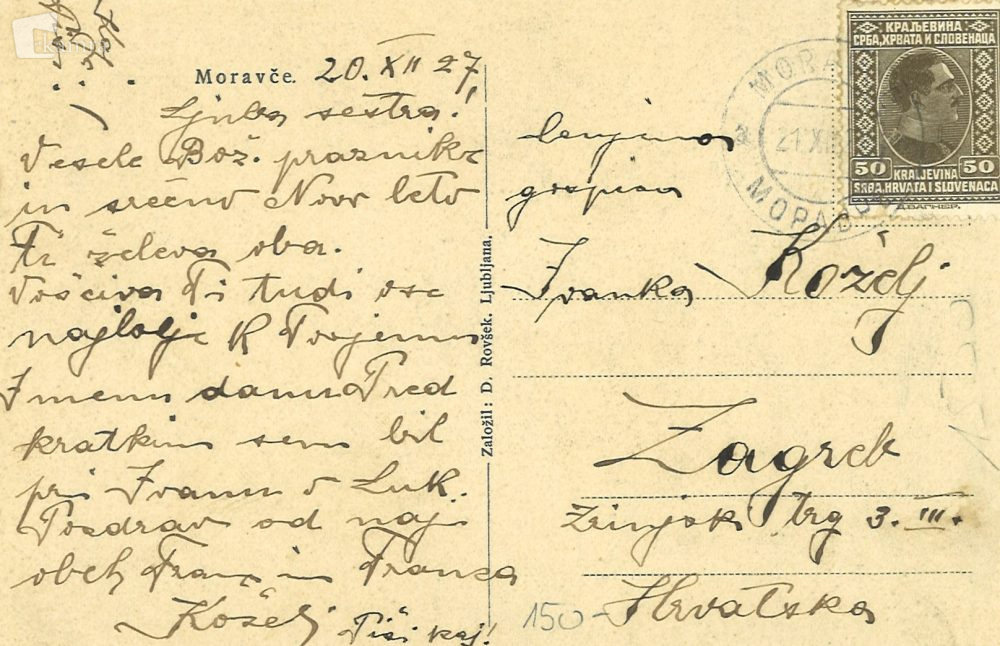 Moravče. 20. XII 27,
Ljuba sestra!
Vesele Bož. praznike
in srečno Novo leto
Ti želeva oba.
Voščiva Ti tudi vse
najbolje K Tvojemu
Imenu danu Pred
kratkim sem bil
pri Ivanu v Luk.
Pozdrav od naj
obeh Franc in Franca
Koželj Piši kaj!
Založil: D. Rovšek, Ljubljana.
КРАЉЕВИНА
СРБА, ХРВАТА И СЛОВЕНАЦА
50 KRALJEVINA 50
SRBA, HRVATA I SLOVENACA
MORA
21.XII
МОРАВ
cenjena
gospica
Ivanka Koželj
Zagreb
Zrinjski trg 3. III.
Hrvatska
150-